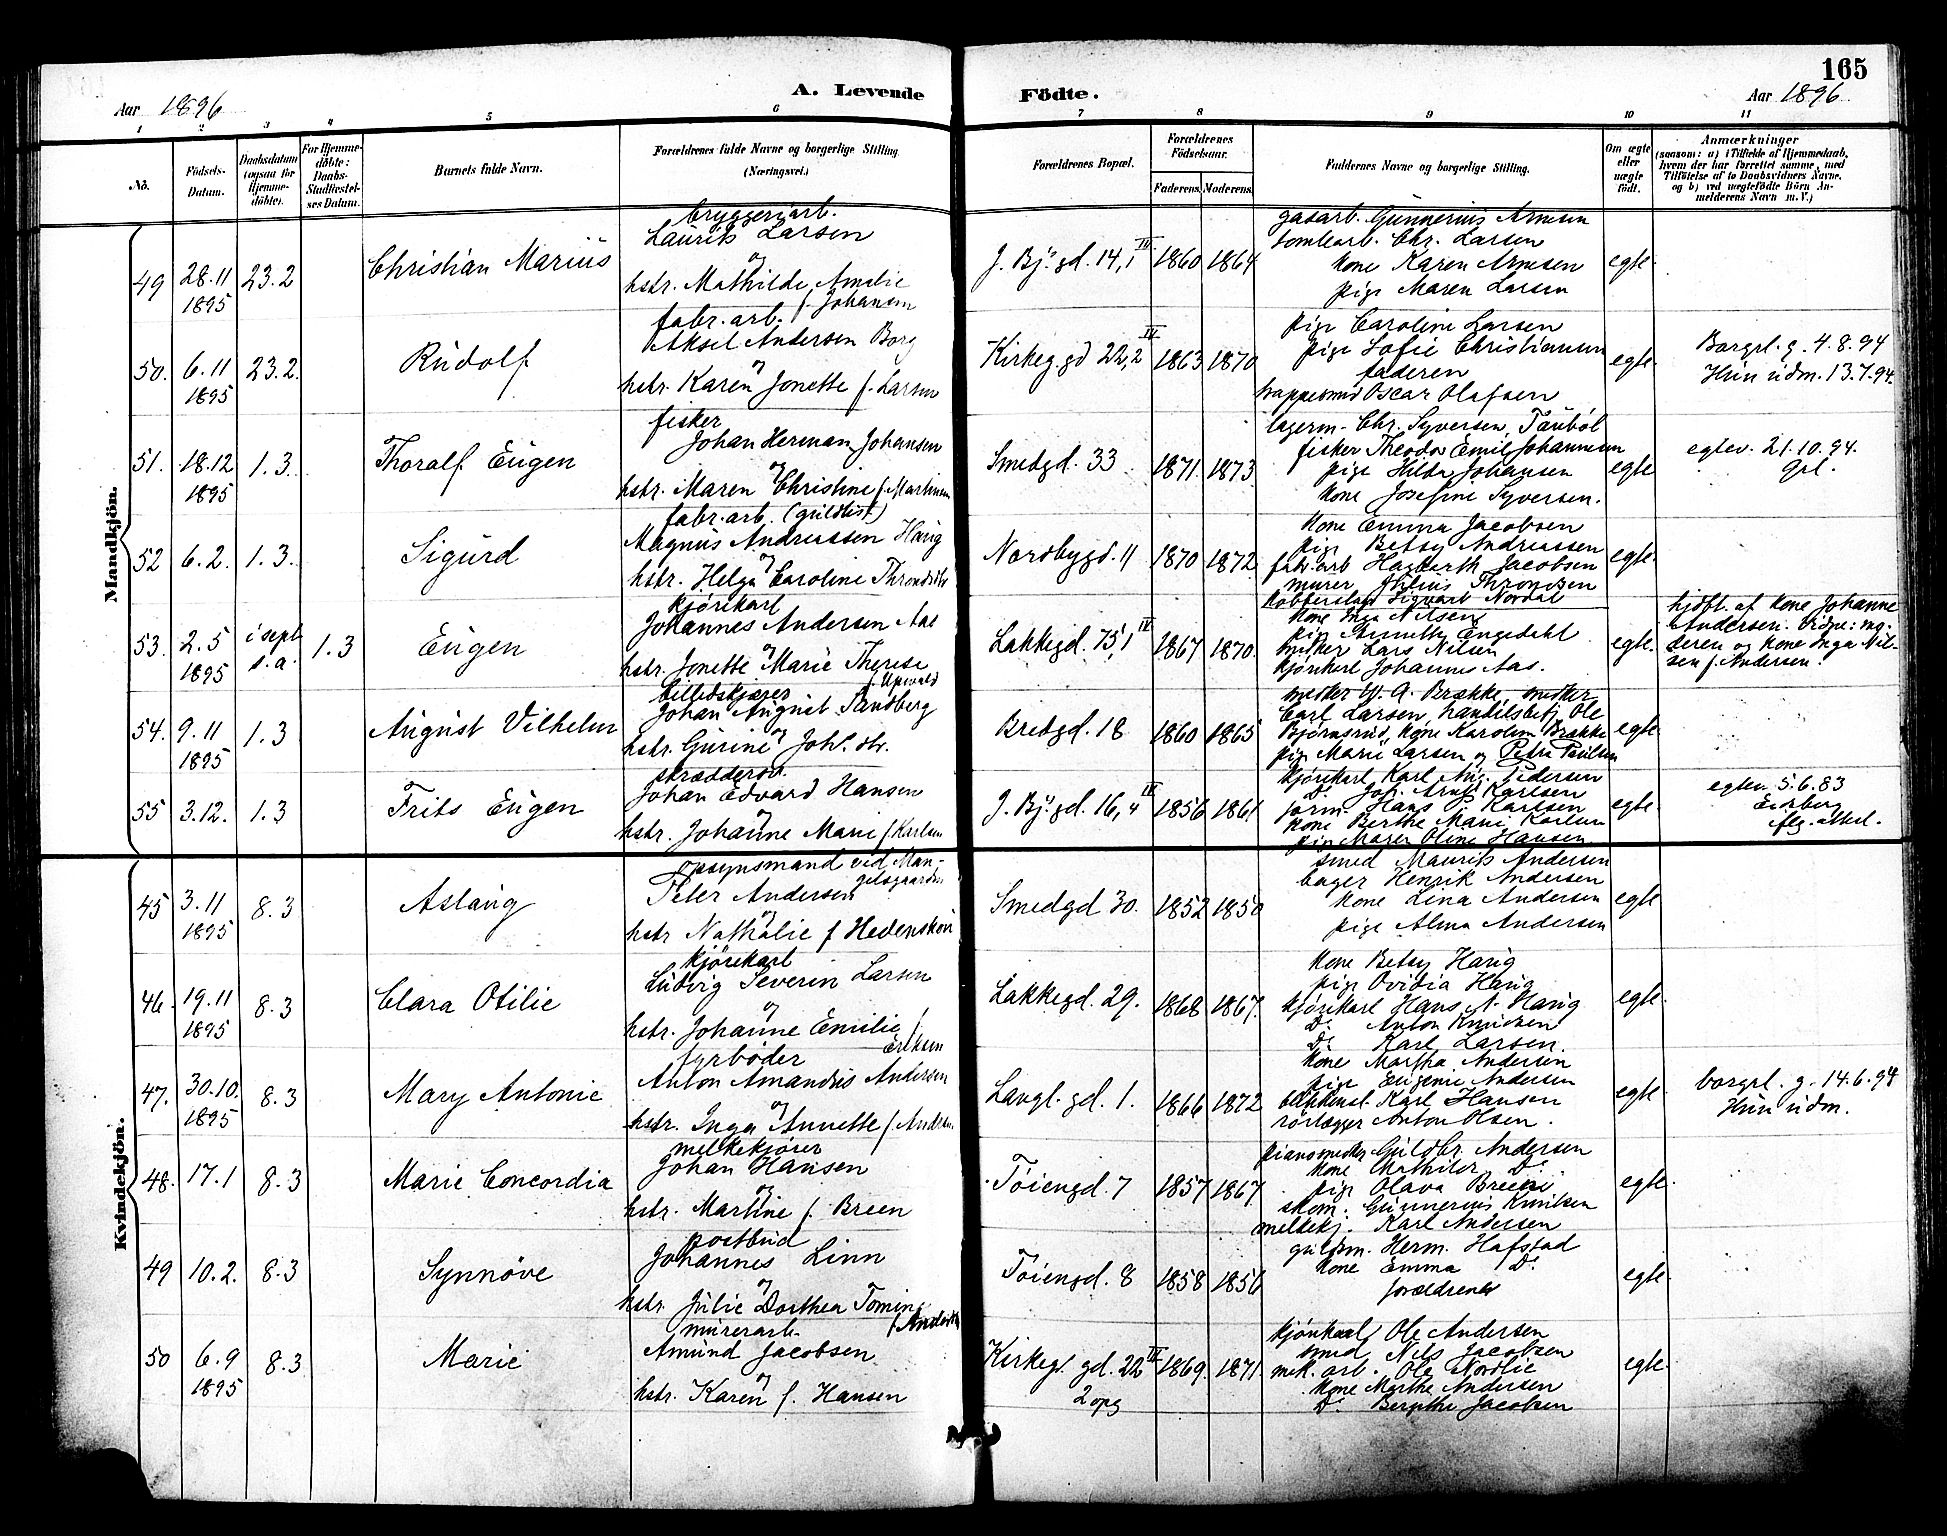 165
Aar 1896
A. Levende
Födte.
Aar 1896
1 2 3 4 5 6 7 8 9 10 11
No.
Födsels-
Datum.
Daabsdatum
(ogsaa for
Hjemme-
döbte).
For Hjemme-
döbte:
Daabs-
Stadfæstel-
ses Datum.
Barnets fulde Navn.
Forældrenes fulde Navne og borgerlige Stilling
(Næringsvei.)
Forældrenes Bopæl.
Forældrenes
Födselsaar.
Faderens. Moderens.
Faddernes Navne og borgerlige Stilling.
Om ægte
eller
uægte
födt.
Anmærkninger
(saasom: a) i Tilfælde af Hjemmedaab,
hvem der har forrettet samme, med
Tilföielse af to Daabsvidners Navne,
og b) ved uægtefödte Börn An-
melderens Navn m. V.)
Mandkjön.
49
28.11
1895
23.2
Christian Marius
bryggeriarb.
Laurits Larsen
og
hstr. Mathilde Amalie
f. Johansen
J. Bj. gd. 14, 1 IV
1860
1864
gasarb. Gunnerius Arnesen
tomtearb. Chr. Larsen
kone Karen Arnesen
pige Maren Larsen
egte.
50.
6.11
1895
23.2.
Rudolf
fabr. arb.
Aksel Andersen Borg
og
hstr. Karen Jonette f. Larsen
Kirkeg. gd 22, 2 IV
1863
1870
pige Caroline Larsen
pige Sofie Christiansen
faderen
Oscar Olafsen
egte.
Borgrl. g. 4.8.94
Hun udm. 13.7.94.
51.
18.12
1895
1.3.
Thoralf Eugen
fisker
Johan Herman Johansen
og
hstr. Maren Christine f. Martinsen
Smedgd. 33
1871.
1873
lagerm. Chr. Syversen, Tauböl
fisker Theodor Emil Johannesen
pige Hilda Johansen
kone Josefine Syversen.
egte
egtev. 21.10.94.
Grl.
52
6.2.
1.3.
Sigurd
fabr. arb. (guldlist)
Magnus Andreassen Haug
og
hstr. Helga Caroline
Nordbygd. 11
1870
1872.
kone Emma Jacobsen
pige Betsy Andreassen
fabr. arb Hagbarth Jacobsen
murer Julius Throndsen
Sigvart Nordal
egte.
53.
2.5
1895
i sept
s. a.
1.3
Eugen
kjörekarl
Johannes Andersen Aas
og
hstr. Jonette Marie Therese
f. Upvald
Lakkegd. 75, 1 IV
1867
1870.
kone Inga Nilsen
pige Annette Engedahl
Lars Nilsen
kjörekarl Johannes Aas.
egte.
hjdbt. af kone Johanne
Andersen. Vidne: mo-
deren og kone Inga Nil-
sen f. Andersen.
54.
9.11
1895
1.3
August Vilhelm
billedskjærer
Johan August Sandberg
og
hstr. Gurine Joh. dtr.
Bredgd. 18
1860
1865
W. A. Brække,
Carl Larsen, handelsbetj. Ole
Björnsrud, kone Karoline Brække
pige Marie Larsen og Petra Paulsen
egte.
55
3.12.
1.3
Frits Eugen
skrædder
Johan Edvard Hansen
og
hstr. Johanne Marie f. Karlsen
J. Bj. gd. 16, 4 IV
1856
1861
kjörekarl Karl Aug. Pedersen
Do Joh. Arnt Karlsen
Hans P. Karlsen
kone Berthe Marie Karlsen
pige Maren Oline Hansen
egte.
egtev 5.6.83
Kvindekjön.
45
3.11
1895
8.3
Aslaug
opsynsmand ved Man-
gelsgaarden
Peter Andersen
og
hstr Nathalie f Hedenskou
Smedgd 30.
1852
1850
smed Maurits Andersen
bager Henrik Andersen
kone Lina Andersen
pige Alma Andersen
egte
46.
19.11
1895
8.3
Clara Otilie
kjörekarl
Ludvig Severin Larsen
og
hstr. Johanne Emilie f.
Eriksen
Lakkegd. 29.
1868
1867.
kone Betsy Haug
pige Ovidia Haug
kjörekarl Hans N. Haug
Do Anton Knudsen
Do Karl Larsen.
egte.
47.
30.10.
1895
8.3
Mary Antonie
fyrböder
Anton Amandus Andersen
og
hstr. Inga Annette f. Andersen
Langl. gd. 1.
1866
1872
kone Martha Andersen
pige Eugenie Andersen
Karl Hansen
rörlægger Anton Olsen.
egte.
borgrl. g. 14.6.94
Hun udm.
48.
17.1
8.3
Marie Concordia
melkekjörer
Johan Hansen
og
hstr. Martine f. Breen
Töiengd. 7
1857
1867
Guldbr. Andersen
kone Mathilde Do
pige Olava Breen
skom. Gunnerius Knudsen
melkekj. Karl Andersen
egte.
49
10.2.
8.3
Synnöve
postbud
Johannes Linn
og
hstr. Julie Dorthea Tomine
f. Andersen
Töiengd. 8
1858
1856
guldsm. Herm. Hafstad
kone Emma Do
forældrene
egte.
50
6.9
1895
8.3
Marie
murerarb.
Amund Jacobsen
og
hstr. Karen f. Hansen
Kirkeg. gd. 22 IV
2 opg
1869.
1871.
kjörekarl Ole Andersen
smed Nils Jacobsen
mek. arb. Ole Nordlie
kone Marthe Andersen
Do Bergithe Jacobsen
egte.